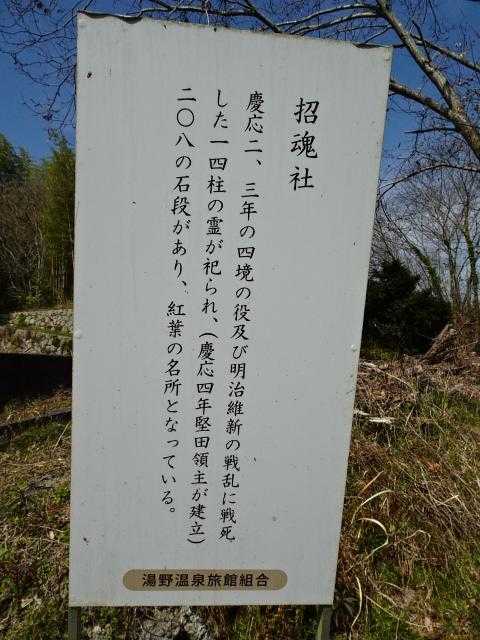 招魂社
慶応二、三年の四境の役及び明治維新の戦乱に戦死
した一四柱の霊が祀られ、(慶応四年堅田領主が建立)
二〇八の石段があり、紅葉の名所となっている。
湯野温泉旅館組合